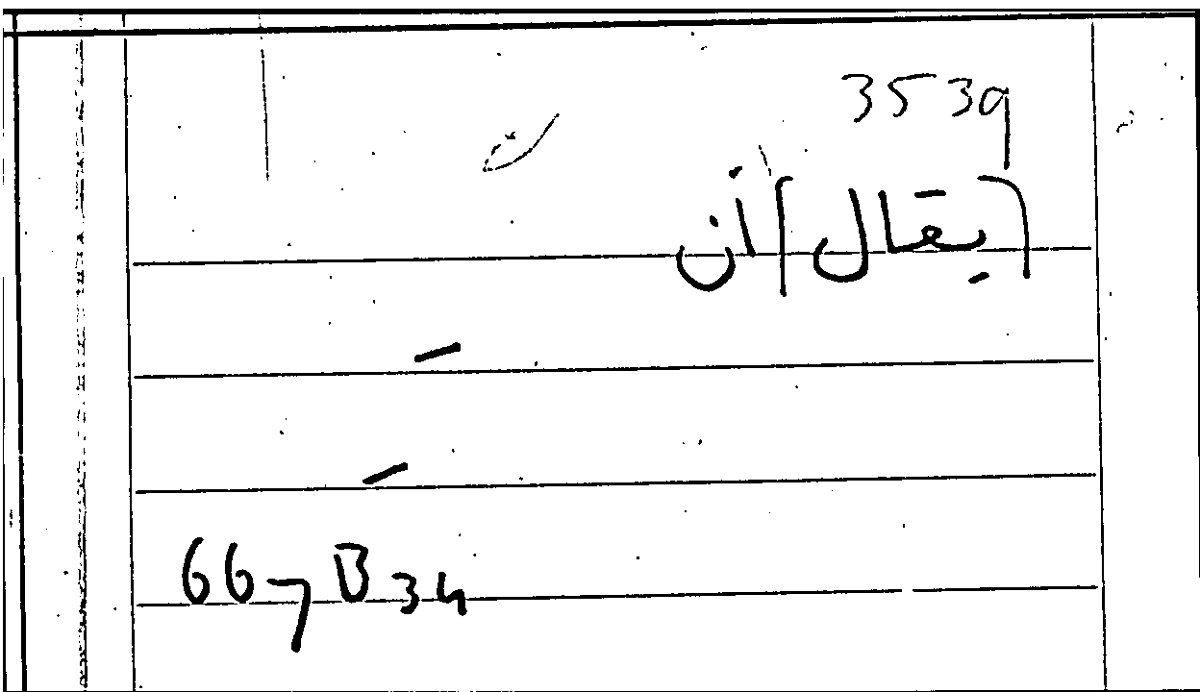 3539
[يقال] أن
667 B34